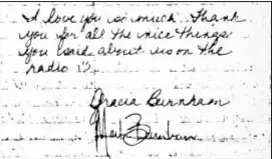 I love you so much. Thank
you for all the nice things
you said about us on the
radio
Gracia Burnham
Burnham